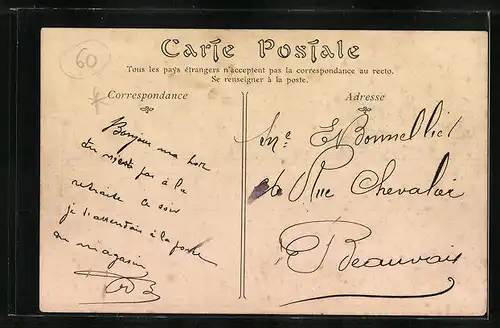 60
Carte Postale
Tous les pays étrangers n'acceptent pas la correspondance au recto.
Se renseigner à la poste.
Correspondance
Adresse
Bonjour ma
pas à la
retraite ce soir
je t'attendrai à la porte
au magasin
E Bonnellier
Rue Chevalier
Beauvais